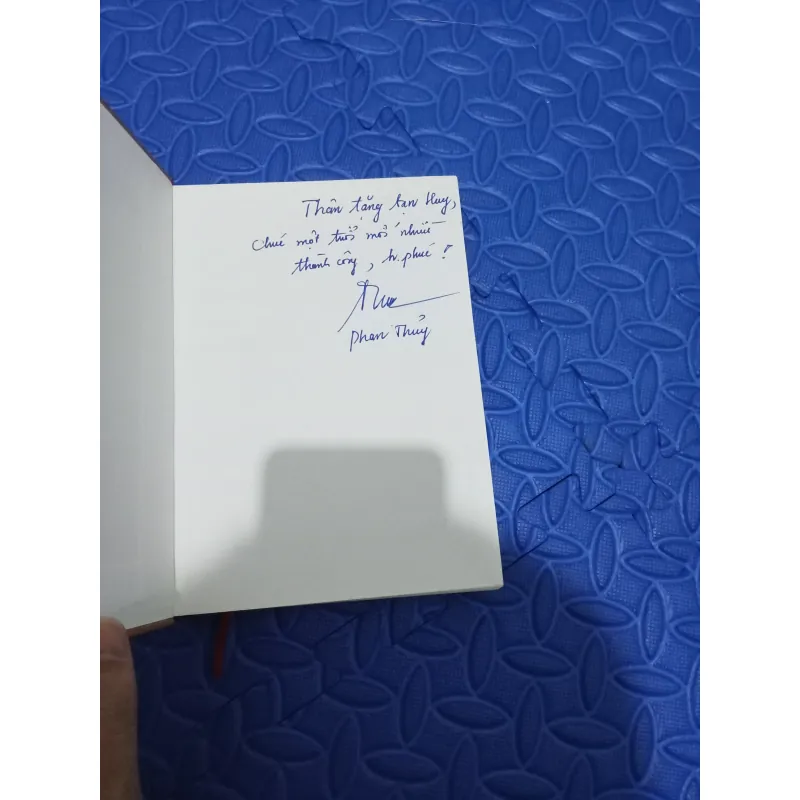 Thân tặng bạn Huy,
Chúc một tuổi mới nhiều
thành công, h. phúc!
Phan Thủy